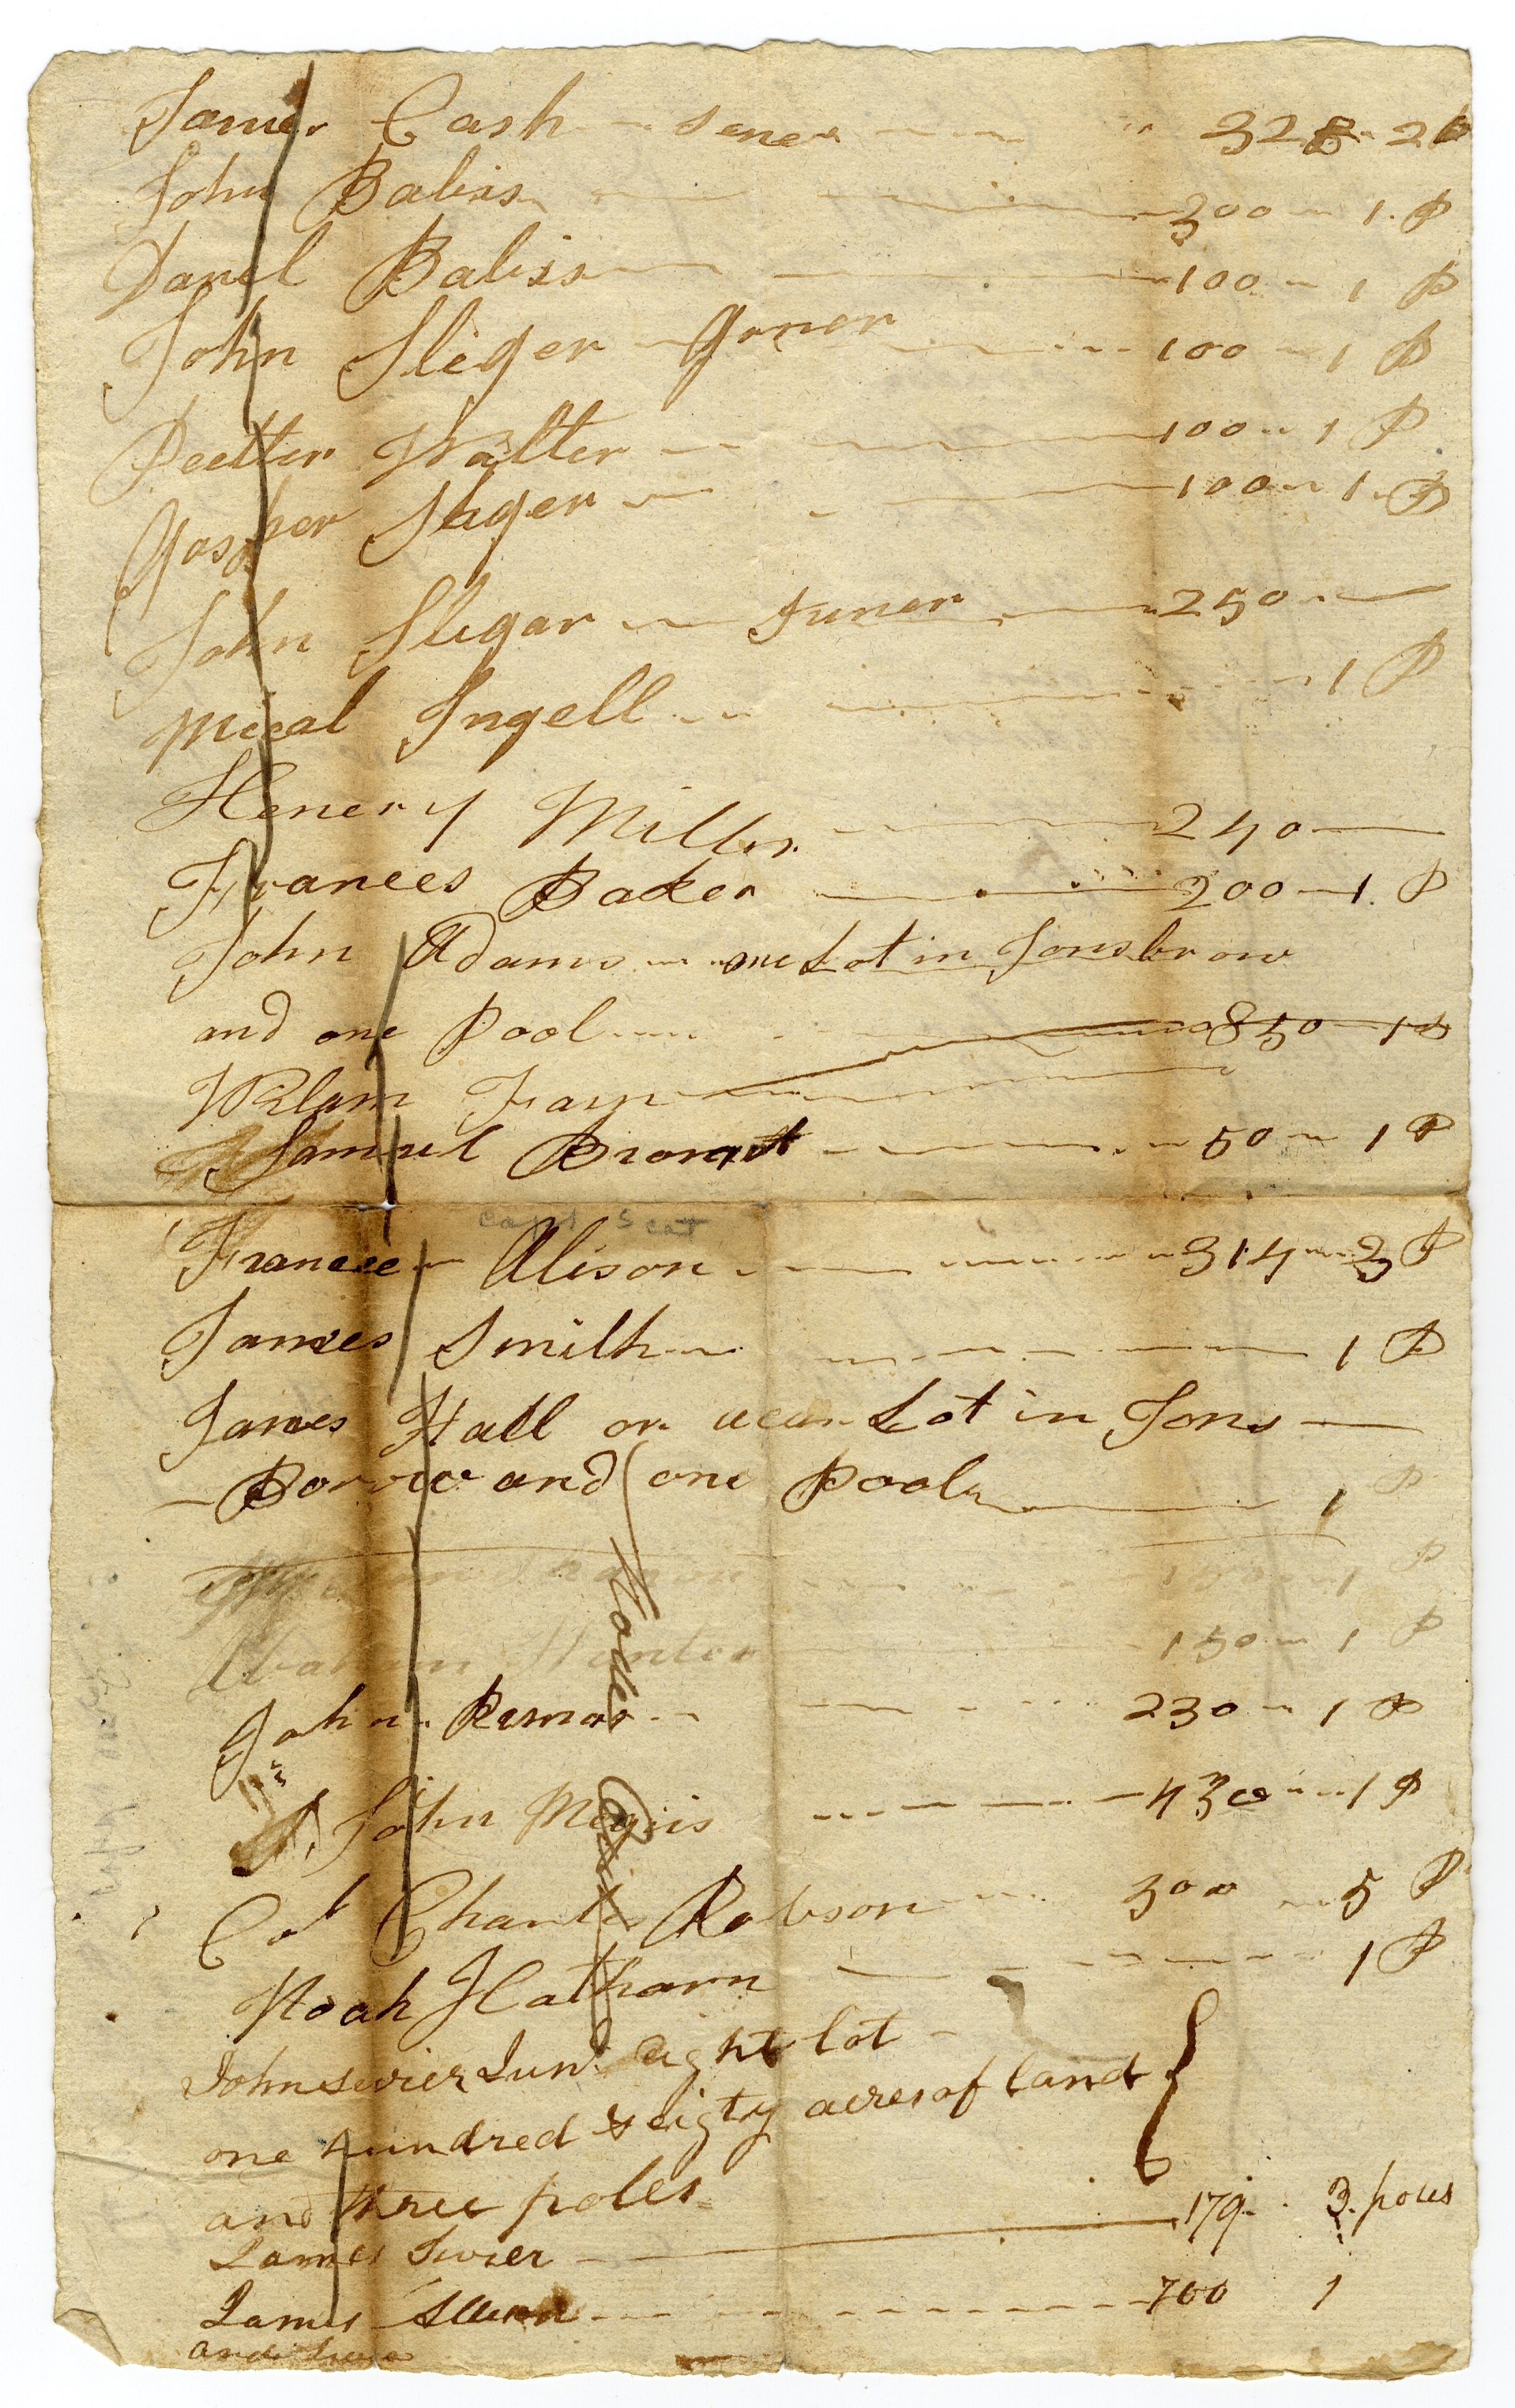 James Cash - sener - - 328 - 2
John Baliss - - 300 - 1. P
Danel Baliss - - 100 - 1 P
John Sleger - Goner - - 100 - 1 P
Peetter Walter - - 100 - 1 P
Gosper Sleger - - 100 - 1. P
John Sligar - Juner - 250 -
Mical Ingell - - 1 P
Henery Miller - 240 -
Frances Baker - 200 - 1. P
John Adams - one Lot in Jonsbrow
and one Pool - 850 - 1 P
Wilam
Samuel - 50 - 1 P
Capt Scot
Francee - Alison - - 314 - 3 P
James Smith - - 1 P
James Hall on Lot in Jons -
- Borrow and one Pool - 1 P
1 P
Abaham Hunter 150 - 1 P
John Remor - - 230 - 1 P
John - - 430 - 1 P
Col Charles Robson - 300 - 5 P
Noah Hathorn - - 1 P
John Sevier Junr. eight lot -
one hundred & eigty acres of land
and three poles
James Sevier - 179 - 3. poles
James - - 700 1